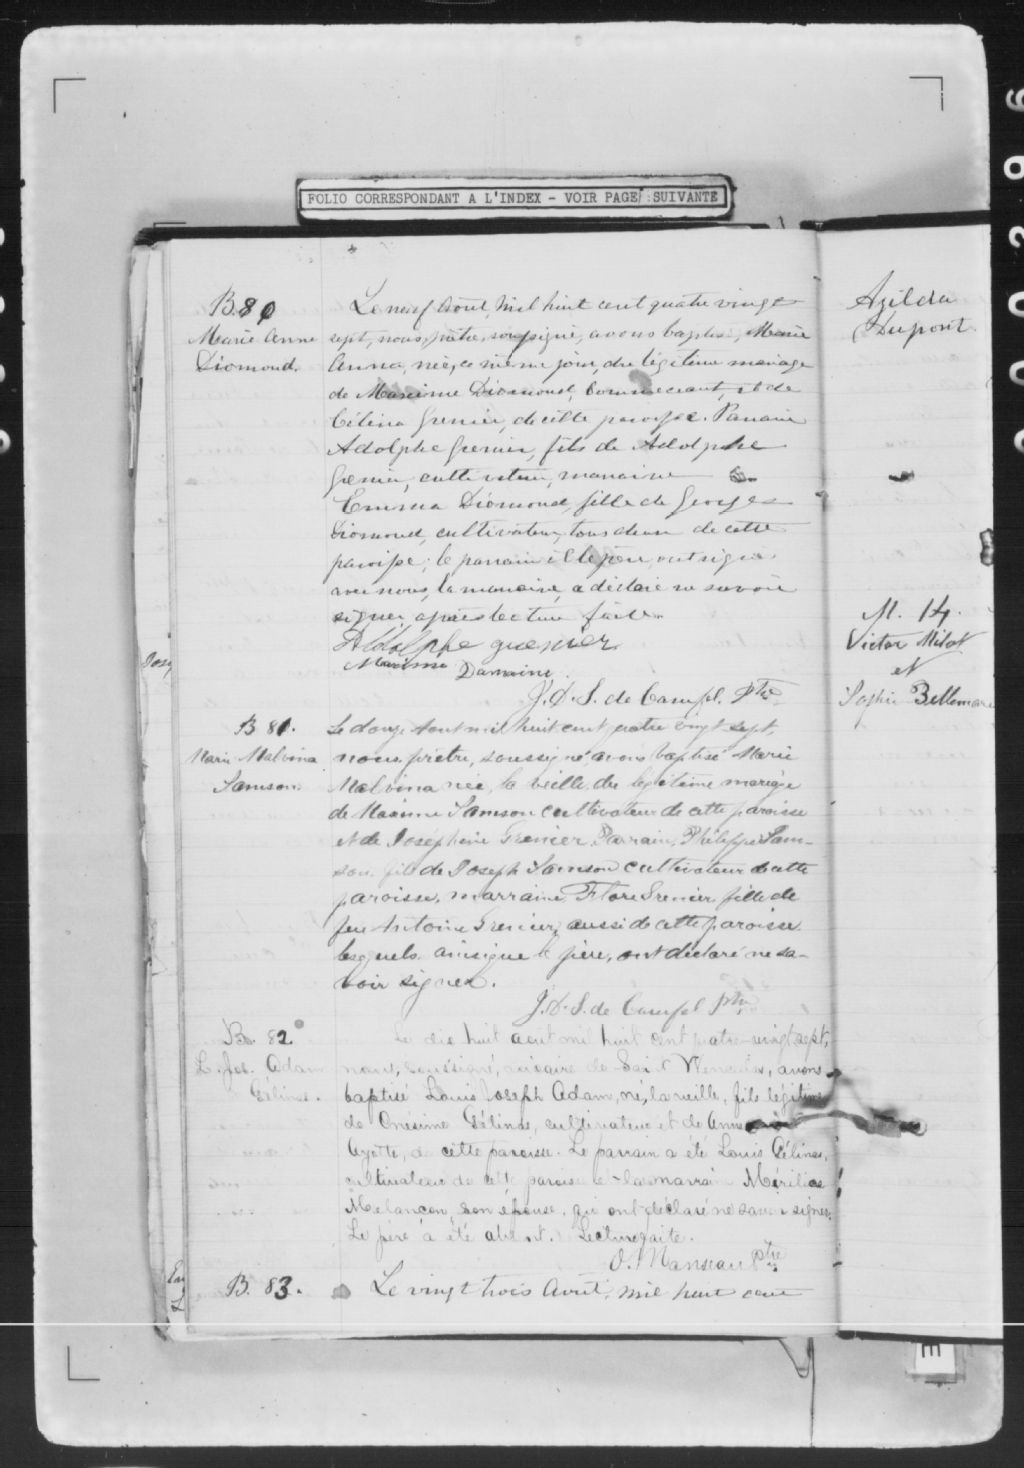 FOLIO CORRESPONDANT A L'INDEX - VOIR PAGE SUIVANTE
B. 80
Marie Anne
Diomond.
Le neuf Août, Mil huit cent quatre vingt
sept, nous, prêtre, soussigné, avons baptisé, Marie
Anna, née, ce même jour, du légitime mariage
de Maxime Diomond, Commerçant, et de
Célina Grenier, de cette paroisse. Parrain
Adolphe Grenier, fils de Adolphe
Grenier, cultivateur, marraine
Emma Diomond, fille de Georges
Diomond, cultivateur, tous deux de cette
paroisse; le parrain et le père, ont signé
avec nous, la marraine, a déclaré ne savoir
signer, après lecture faite.
Aldolphe grenier
Maxime
J. D. S. de Campl. Ptre
B 81.
Marie Malvina
Samson
Le douze Aout mil huit cent quatre vingt sept,
nous, prêtre, soussigné avons baptisé Marie
Malvina née, la veille du légitime mariage
de Maxime Samson cultivateur de cette paroisse
et de Joséphine Grenier. Parrain, Philippe Sam-
son, fils de Joseph Samson cultivateur de cette
paroisse, marraine Flore Grenier fille de
feu Antoine Grenier, aussi de cette paroisse.
lesquels ainsi que le père, ont déclaré ne sa-
voir signer.
J. D. S. de Campl ptre
B. 82
L. Jos. Adam
Gélinas.
Le dix huit août mil huit cent quatre-vingt sept,
nous, soussigné, vicaire de Saint, avons
baptisé Louis Joseph Adam, né, la veille, fils légitime
de Onésime Gélinas, cultivateur et de Anne
Ayotte, de cette paroisse. Le parrain a été Louis Gélinas,
cultivateur de cette paroisse et la marraine
Melançon, son épouse, qui ont déclaré ne savoir signer.
Le père a été absent. Lecture faite.
O. Manseau Ptre
B. 83.
Le vingt trois Août, mil huit cent
Azilda
Dupont
M. 14.
Victor Milot
et
Sophie Bellemare